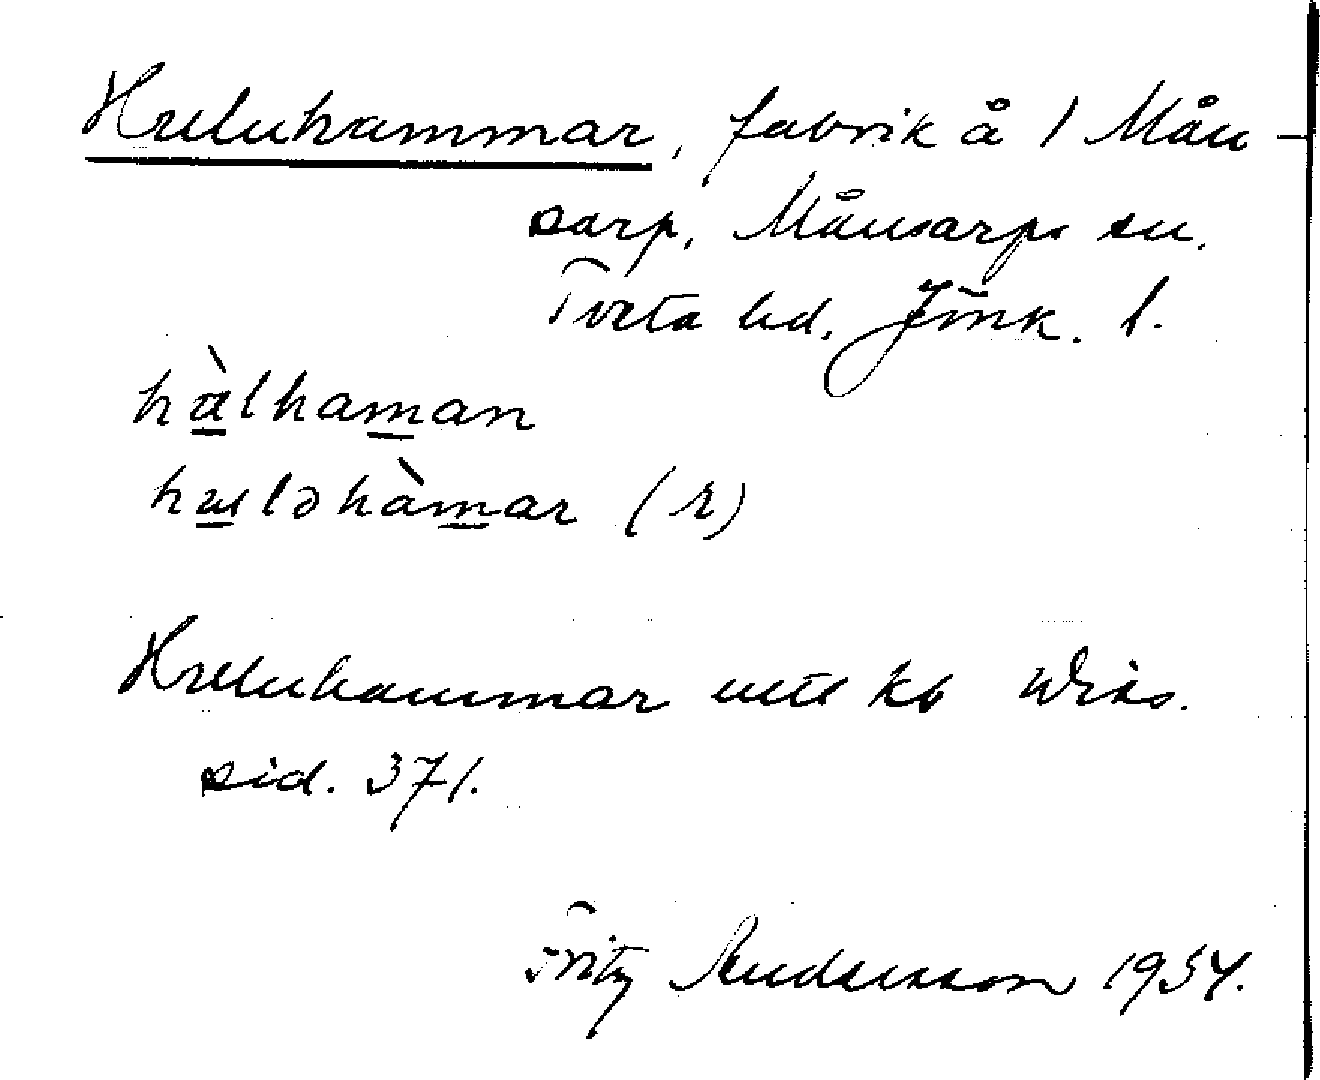 Huluhammar, fabrik å 1 Mån-
sarp, Månsarps sn.
Tveta hd. Jönk. l.
hàlhaman
huləhàmar (r)
Huluhammar utt kb
sid. 371.
Fritz Andersson 1954.